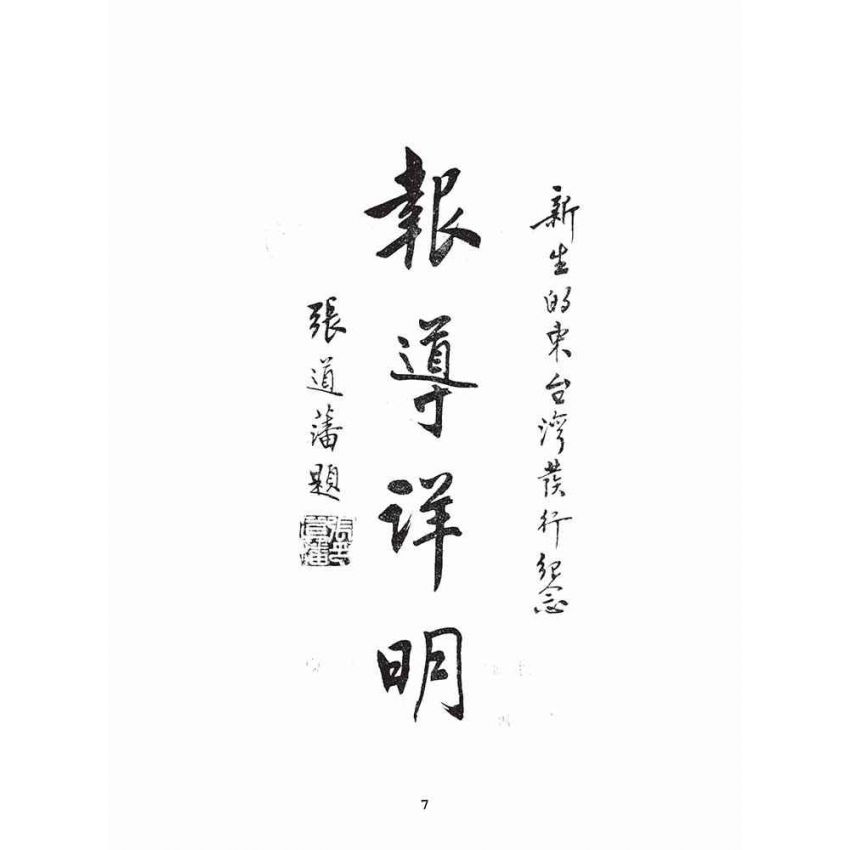 新生的東台灣發行紀念
報導詳明
張道藩題
張道藩印
7